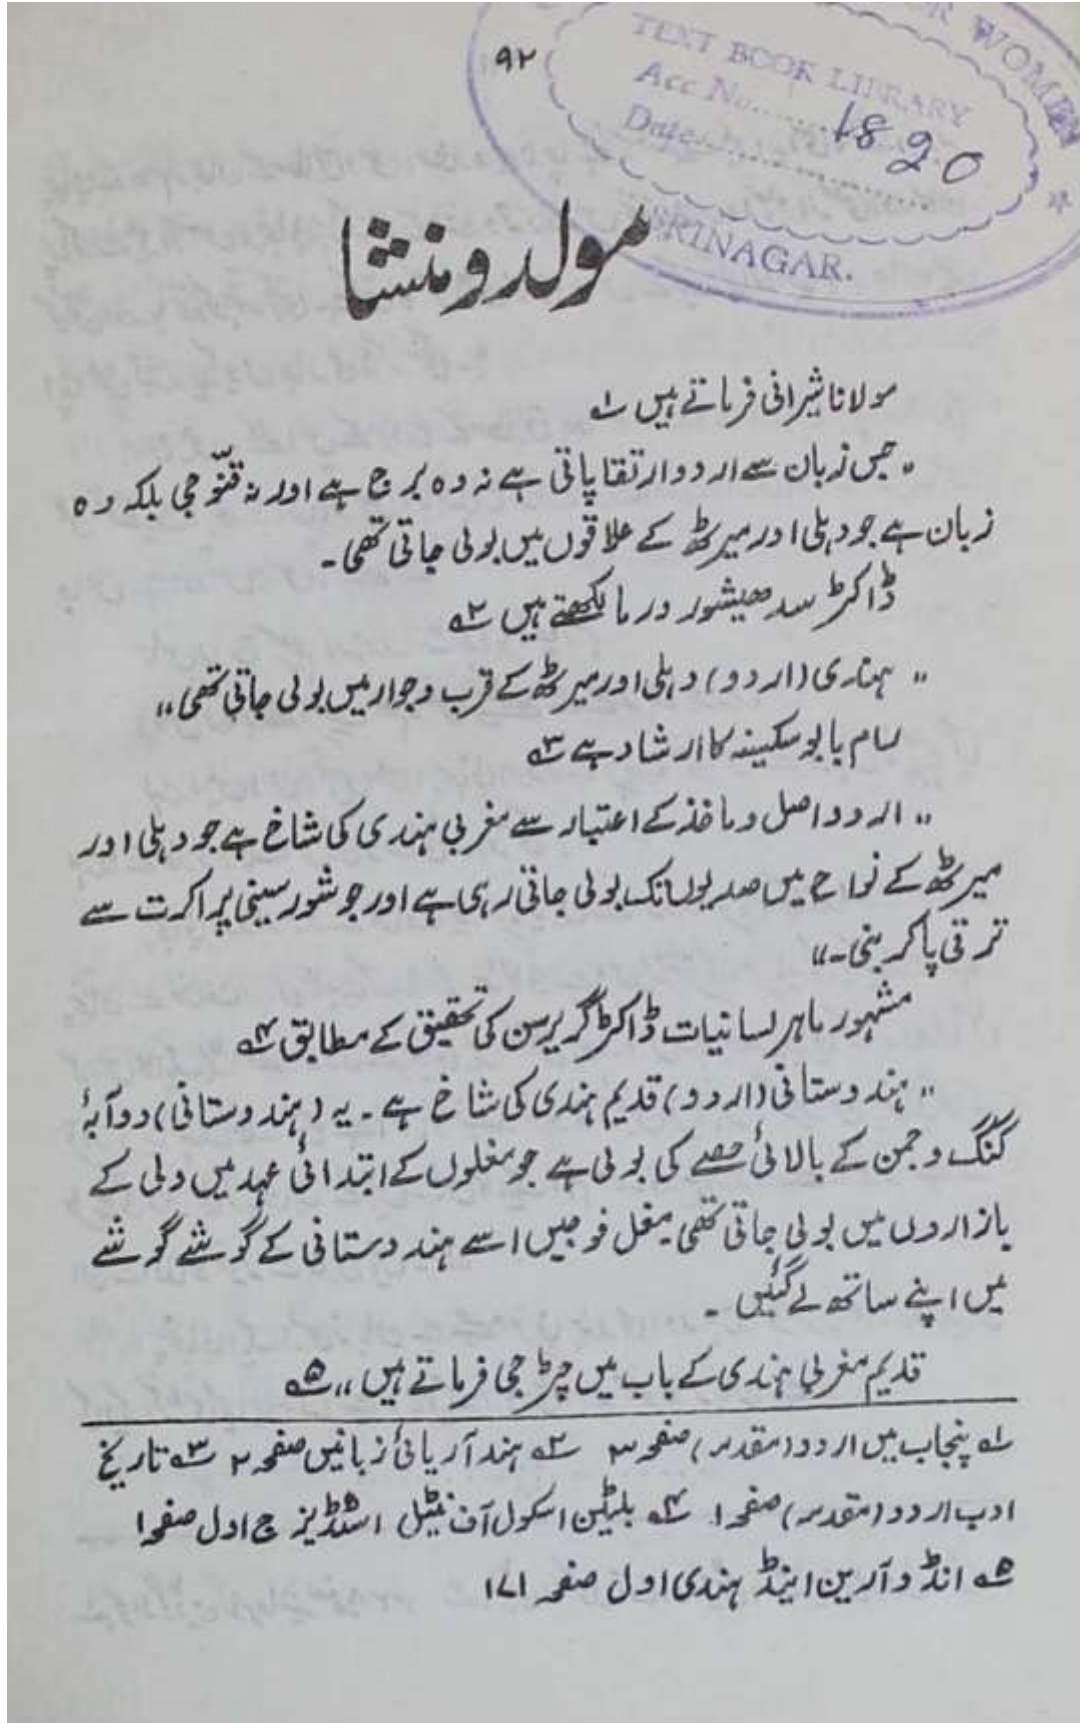 ۹۲
OR WOMEN
TEXT BOOK LIBRARY
Acc No.......1820
Date................
SRINAGAR.
مولد و منشا
مولانا شیرانی فرماتے ہیں ۱؎
،،جس زبان سے اردو ارتقا پاتی ہے نہ وہ برج ہے اور نہ قنّوجی بلکہ وہ
زبان ہے جو دہلی اور میرٹھ کے علاقوں میں بولی جاتی تھی۔
ڈاکٹر سدھیشور ورما لکھتے ہیں ۲؎
،، ہندی (اردو) دہلی اور میرٹھ کے قرب و جوار میں بولی جاتی تھی،،
رام بابو سکسینہ کا ارشاد ہے ۳؎
،، اردو اصل و ماخذ کے اعتبار سے مغربی ہندی کی شاخ ہے جو دہلی اور
میرٹھ کے نواح میں صدیوں تک بولی جاتی رہی ہے اور جو شورسینی پراکرت سے
ترقی پاکر بنی۔،،
مشہور ماہر لسانیات ڈاکٹر گریرسن کی تحقیق کے مطابق ۴؎
،، ہندوستانی (اردو) قدیم ہندی کی شاخ ہے۔ یہ (ہندوستانی) دوآبۂ
گنگ و جمن کے بالائی حصے کی بولی ہے جو مغلوں کے ابتدائی عہد میں دلی کے
بازاروں میں بولی جاتی تھی مغل فوجیں اسے ہندوستانی کے گوشے گوشے
میں اپنے ساتھ لے گئیں ۔
قدیم مغربی ہندی کے باب میں چٹرجی فرماتے ہیں،، ۵؎
۱؎ پنجاب میں اردو (مقدمہ) صفحہ ۳ ۲؎ ہند آریائی زبانیں صفحہ ۲ ۳؎ تاریخ
ادب اردو (مقدمہ) صفحہ ۱ ۴؎ بلیٹین اسکول آف نٹیل اسٹڈیز ج اول صفحہ ۱
۵؎ انڈو آرین اینڈ ہندی اول صفحہ ۱۷۱